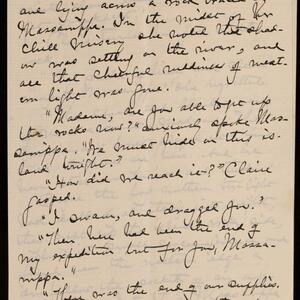 and lying across a rock
Massasippa. In the midst of her
chill misery she noted that shad-
ow was settling on the river, and
all that cheerful ruddiness of west-
ern light was gone.
"Madame, are you able to get up
the rocks now?" anxiously spoke Mas-
sasippa. "We must hide on this is-
land tonight."
"How did we reach it?" Claire
gasped.
"I swam, and dragged you."
"Then here had been the end of
my expedition but for you, Massa-
sippa."
"There was the end of our supplies.